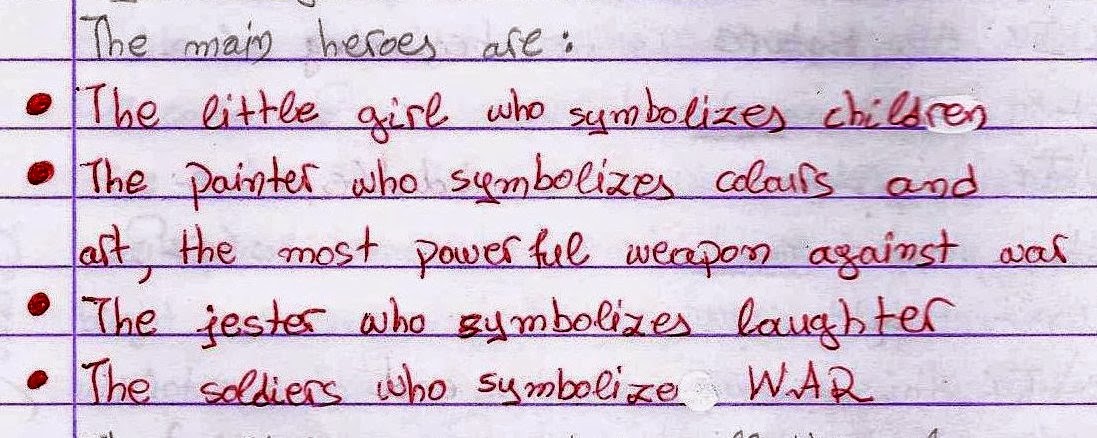 The main heroes are:
• The little girl who symbolizes children
• The painter who symbolizes colours and
art, the most powerful weapon against war
• The jester who symbolizes laughter
• The soldiers who symbolize WAR